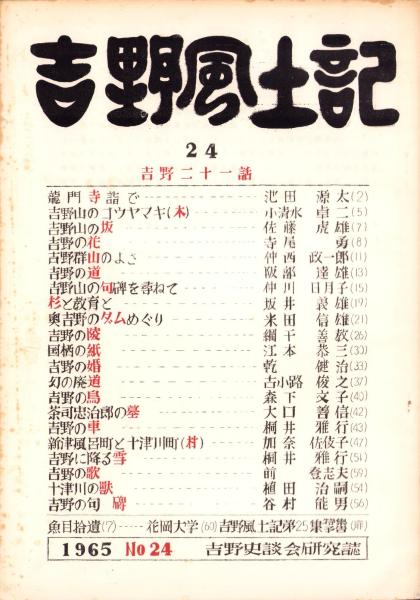 吉野風土記
24
吉野二十一話
龍門寺詣で 池田源太(2)
吉野山のコツヤマキ(木) 小清水卓二(5)
吉野山の坂 佐藤虎雄(7)
吉野の花 寺尾勇(8)
吉野群山のよさ 仲西政一郎(11)
吉野の道 阪部達雄(13)
吉野山の句碑を尋ねて 仲川日月子(15)
杉と教育と 坂井義雄(19)
奥吉野のダムめぐり 米田信雄(21)
吉野の陵 綱干善教(26)
国栖の紙 江本恭三(30)
吉野の婚 乾健治(33)
幻の廃道 吉小路俊之(37)
吉野の鳥 森下文子(40)
茶司忠治郎の墓 大口善信(42)
吉野の車 桐井雅行(43)
新津風呂町と十津川町(村) 加奈佐伎子(47)
吉野に降る雪 桐井雅行(51)
吉野の歌 前登志夫(59)
十津川の獣 植田治嗣(54)
吉野の句碑 谷村能男(56)
魚目拾遺(7) 花岡大学(60) 吉野風土記第25集
1965 No24 吉野史談会研究誌